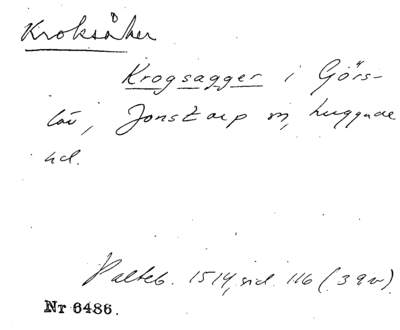 Kroksåker
Krogsagger i Görs-
löv, Jonstorp sn, Luggude
hd.
Palteb. 1514, sid. 116 (39v)
Nr 6486.